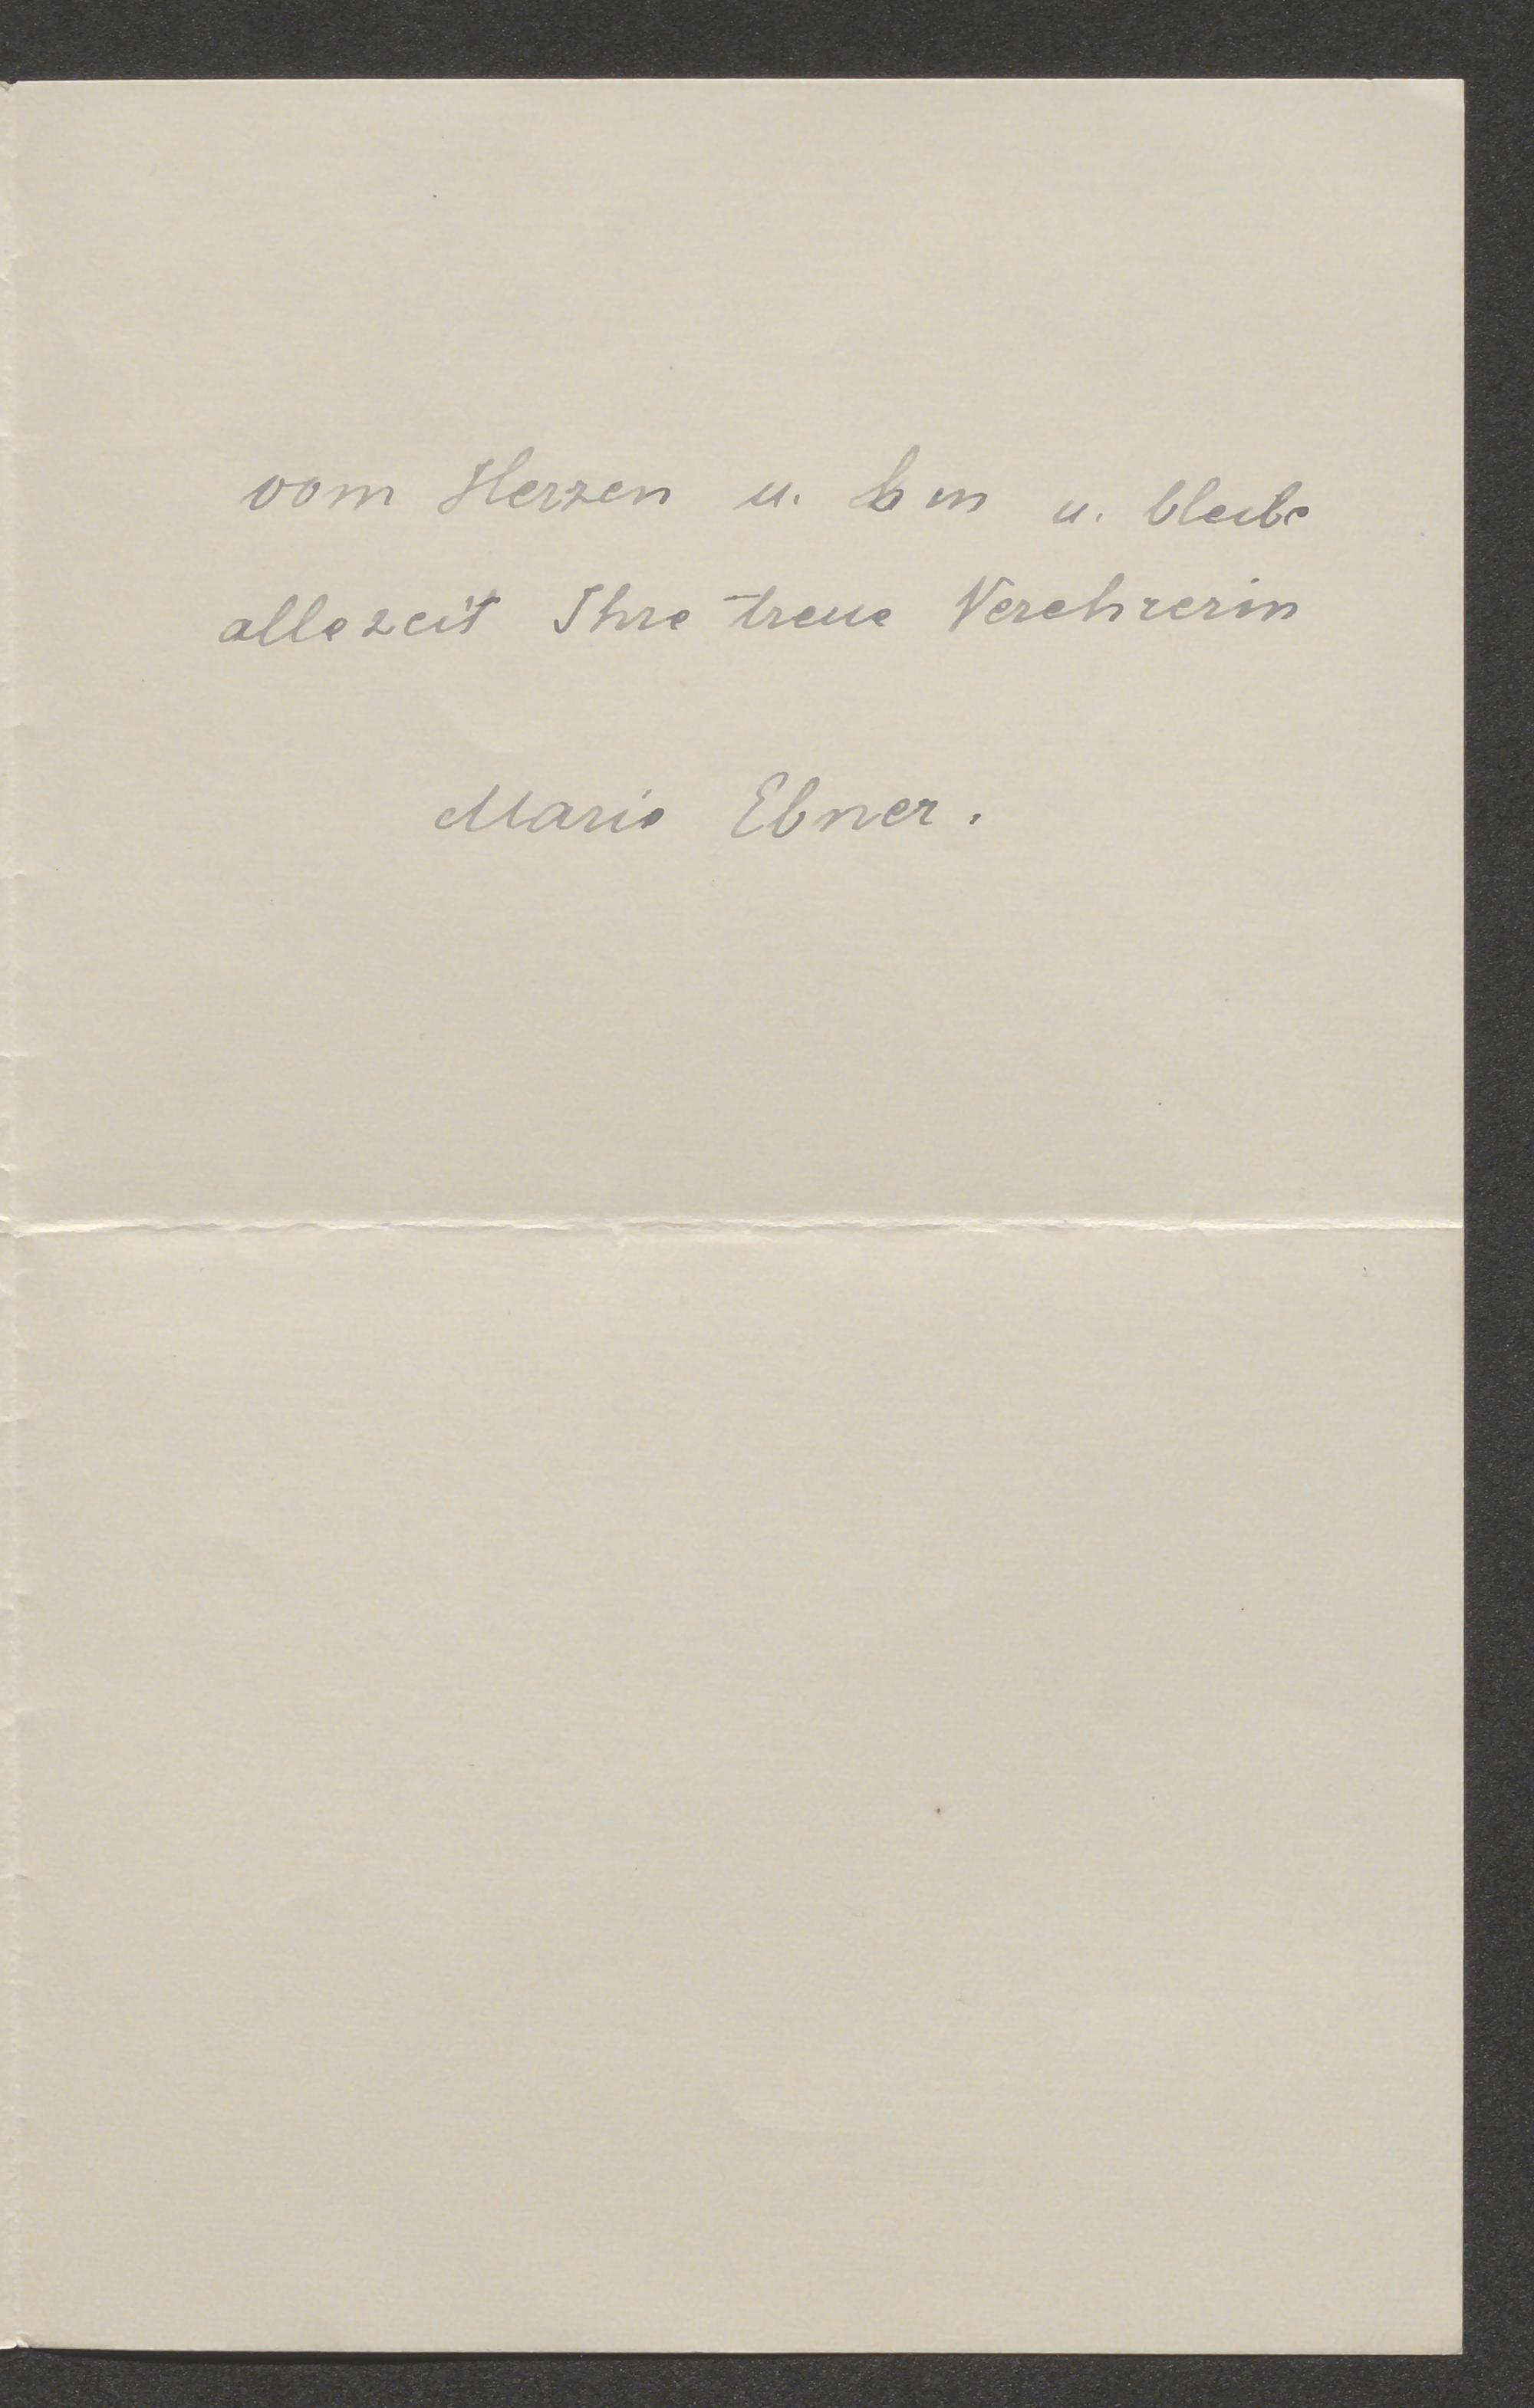 vom Herzen u. bin u. bleibe
allezeit Ihre treue Verehrerin
Marie Ebner.